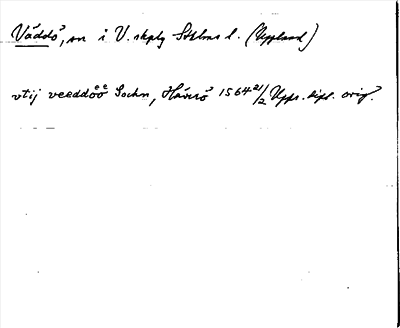 Väddö, sn i V. skplg Sthlms l. (Uppland)
vtij veeddöö Sochn, Häverö 1564 21/2 Upps. dipl. orig.